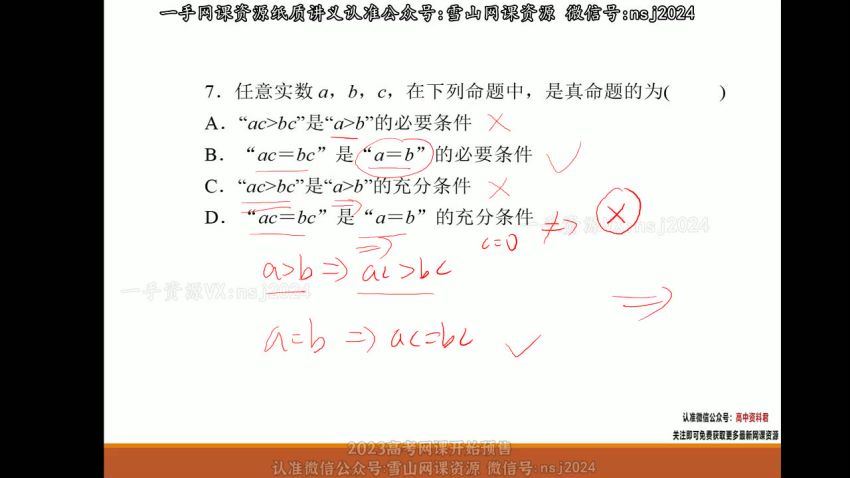 一手网课资源纸质讲义认准公众号:雪山网课资源 微信号:nsj2024
7．任意实数 a，b，c，在下列命题中，是真命题的为(　　)
A．“ac>bc”是“a>b”的必要条件 ×
B．“ac＝bc”是“a＝b”的必要条件 ✓
C．“ac>bc”是“a>b”的充分条件 ×
D．“ac＝bc”是“a＝b”的充分条件 ⇏ ×
c=0
nsj2024
a>b ⇒ ac>bc
一手资源VX:nsj2024
⇒
a=b ⇒ ac=bc ✓
认准微信公众号：高中资料君
关注即可免费获取更多最新网课资源
2023高考网课开始预售
认准微信公众号:雪山网课资源 微信号:nsj2024